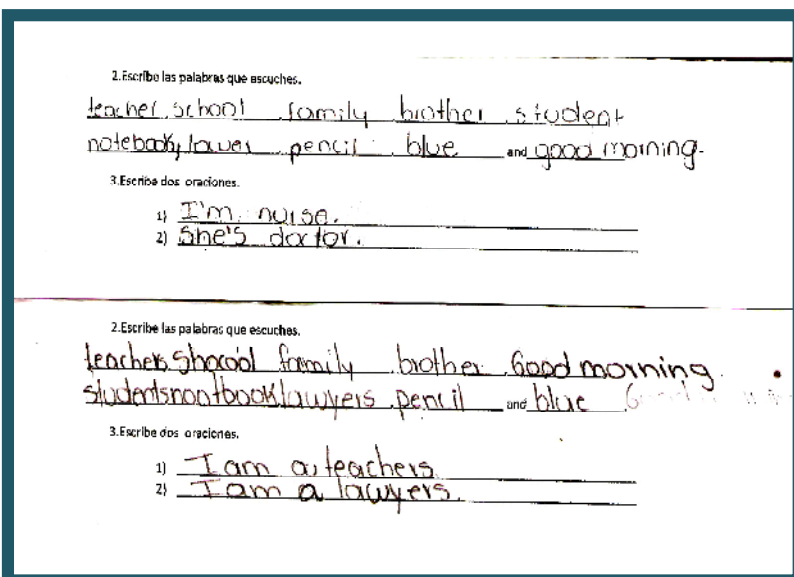 2.Escribe las palabras que escuches.
teacher, school, family, brother, student
notebook, lawer, pencil, blue and good morning.
3.Escribe dos oraciones.
1) I'm nurse.
2) She's doctor.
2.Escribe las palabras que escuches.
teachers, shocool, family, brother, Good morning
students, nootbook, lawyers, pencil and blue
3.Escribe dos oraciones.
1) I am a teachers
2) I am a lawyers.